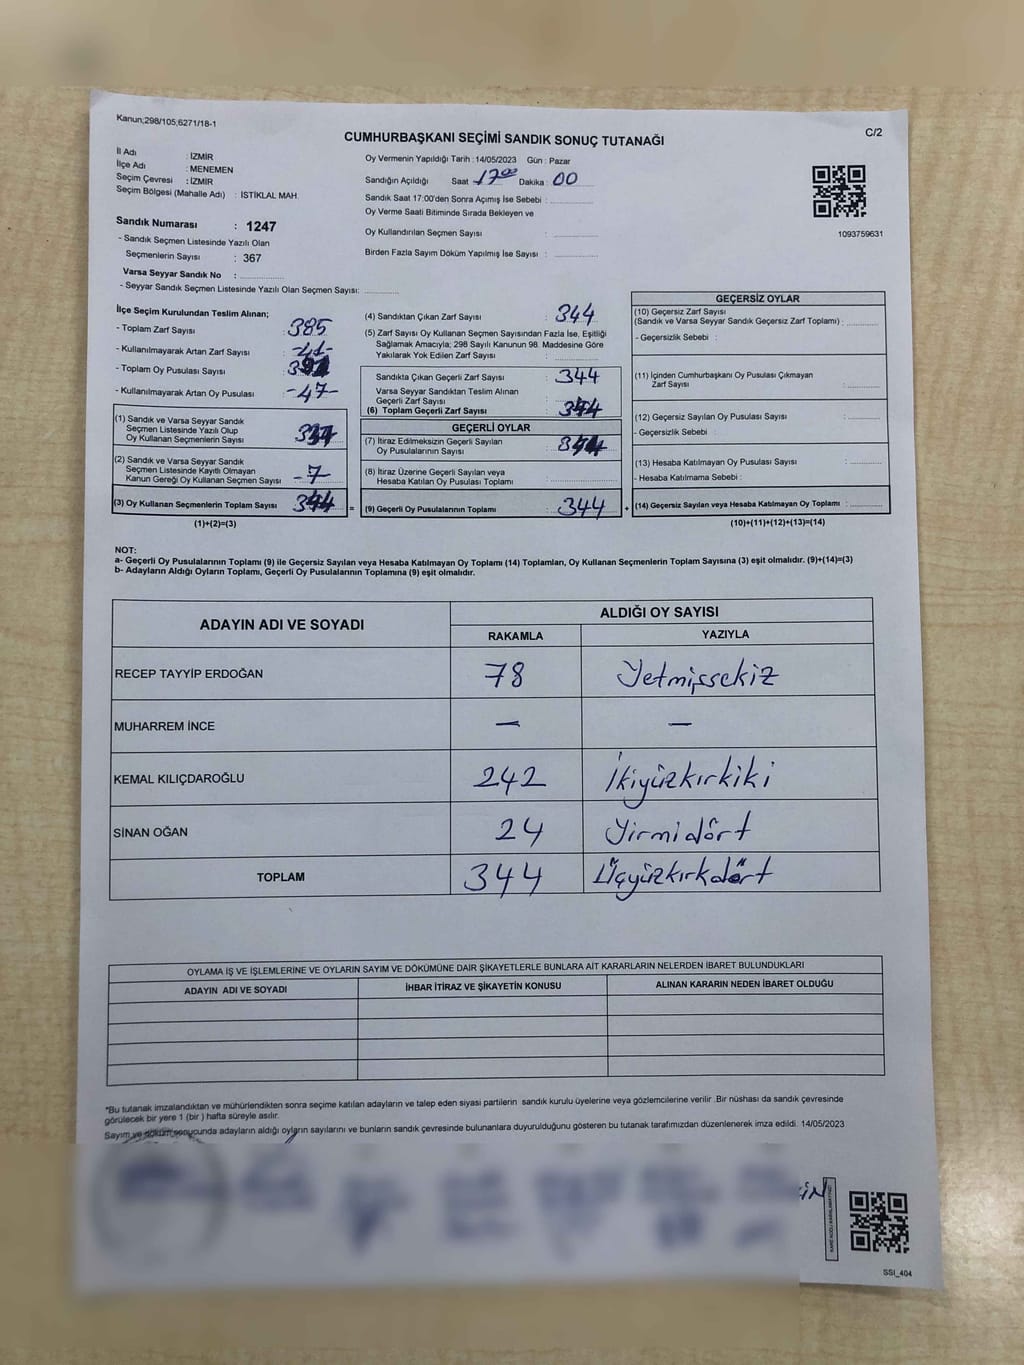 Kanun;298/105,6271/18-1
C/2
CUMHURBAŞKANI SEÇİMİ SANDIK SONUÇ TUTANAĞI
İl Adı : İZMİR
İlçe Adı : MENEMEN
Seçim Çevresi : İZMİR
Seçim Bölgesi (Mahalle Adı) : İSTİKLAL MAH.
Oy Vermenin Yapıldığı Tarih : 14/05/2023 Gün : Pazar
Sandığın Açıldığı Saat : 17 00 Dakika : 00
Sandık Saat 17:00'den Sonra Açımış İse Sebebi :
Oy Verme Saati Bitiminde Sırada Bekleyen ve
Oy Kullandırılan Seçmen Sayısı :
Birden Fazla Sayım Döküm Yapılmış İse Sayısı :
1093759631
Sandık Numarası : 1247
- Sandık Seçmen Listesinde Yazılı Olan
Seçmenlerin Sayısı : 367
Varsa Seyyar Sandık No :
- Seyyar Sandık Seçmen Listesinde Yazılı Olan Seçmen Sayısı:
İlçe Seçim Kurulundan Teslim Alınan;
- Toplam Zarf Sayısı : 385
- Kullanılmayarak Artan Zarf Sayısı : -41-
- Toplam Oy Pusulası Sayısı :
- Kullanılmayarak Artan Oy Pusulası : -47-
(1) Sandık ve Varsa Seyyar Sandık
Seçmen Listesinde Yazılı Olup
Oy Kullanan Seçmenlerin Sayısı :
(2) Sandık ve Varsa Seyyar Sandık
Seçmen Listesinde Kayıtlı Olmayan
Kanun Gereği Oy Kullanan Seçmen Sayısı : -7-
(3) Oy Kullanan Seçmenlerin Toplam Sayısı : 344 =
(1)+(2)=(3)
(4) Sandıktan Çıkan Zarf Sayısı : 344
(5) Zarf Sayısı Oy Kullanan Seçmen Sayısından Fazla İse, Eşitliği
Sağlamak Amacıyla; 298 Sayılı Kanunun 98. Maddesine Göre
Yakılarak Yok Edilen Zarf Sayısı :
Sandıkta Çıkan Geçerli Zarf Sayısı : 344
Varsa Seyyar Sandıktan Teslim Alınan
Geçerli Zarf Sayısı :
(6) Toplam Geçerli Zarf Sayısı : 344
GEÇERLİ OYLAR
(7) İtiraz Edilmeksizin Geçerli Sayılan
Oy Pusulalarının Sayısı : 344
(8) İtiraz Üzerine Geçerli Sayılan veya
Hesaba Katılan Oy Pusulası Toplamı :
(9) Geçerli Oy Pusulalarının Toplamı : 344 +
GEÇERSİZ OYLAR
(10) Geçersiz Zarf Sayısı
(Sandık ve Varsa Seyyar Sandık Geçersiz Zarf Toplamı) :
- Geçersizlik Sebebi :
(11) İçinden Cumhurbaşkanı Oy Pusulası Çıkmayan
Zarf Sayısı :
(12) Geçersiz Sayılan Oy Pusulası Sayısı :
- Geçersizlik Sebebi :
(13) Hesaba Katılmayan Oy Pusulası Sayısı :
- Hesaba Katılmama Sebebi :
(14) Geçersiz Sayılan veya Hesaba Katılmayan Oy Toplamı :
(10)+(11)+(12)+(13)=(14)
NOT:
a- Geçerli Oy Pusulalarının Toplamı (9) ile Geçersiz Sayılan veya Hesaba Katılmayan Oy Toplamı (14) Toplamları, Oy Kullanan Seçmenlerin Toplam Sayısına (3) eşit olmalıdır. (9)+(14)=(3)
b- Adayların Aldığı Oyların Toplamı, Geçerli Oy Pusulalarının Toplamına (9) eşit olmalıdır.
ADAYIN ADI VE SOYADI
ALDIĞI OY SAYISI
RAKAMLA YAZIYLA
RECEP TAYYİP ERDOĞAN 78 Yetmişsekiz
MUHARREM İNCE — —
KEMAL KILIÇDAROĞLU 242 İkiyüzkırkiki
SİNAN OĞAN 24 Yirmidört
TOPLAM 344 Üçyüzkırkdört
OYLAMA İŞ VE İŞLEMLERİNE VE OYLARIN SAYIM VE DÖKÜMÜNE DAİR ŞİKAYETLERLE BUNLARA AİT KARARLARIN NELERDEN İBARET BULUNDUKLARI
ADAYIN ADI VE SOYADI İHBAR İTİRAZ VE ŞİKAYETİN KONUSU ALINAN KARARIN NEDEN İBARET OLDUĞU
*Bu tutanak imzalandıktan ve mühürlendikten sonra seçime katılan adayların ve talep eden siyasi partilerin sandık kurulu üyelerine veya gözlemcilerine verilir .Bir nüshası da sandık çevresinde
görülecek bir yere 1 (bir ) hafta süreyle asılır.
Sayım ve döküm sonucunda adayların aldığı oyların sayılarını ve bunların sandık çevresinde bulunanlara duyurulduğunu gösteren bu tutanak tarafımızdan düzenlenerek imza edildi. 14/05/2023
SSI_404